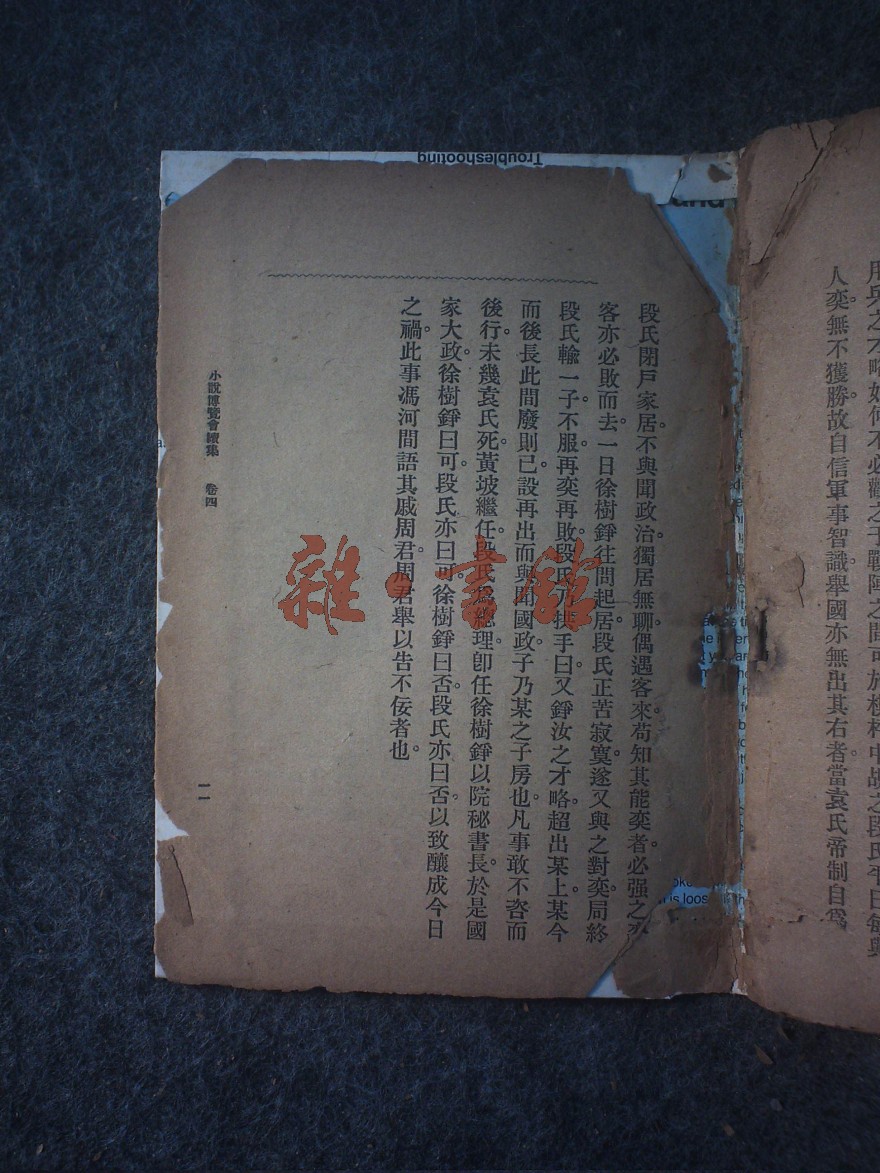 用兵之才略如何不必觀之于戰陣之間可於楸枰中覘之段氏平日每與
人奕無不獲勝故自信軍事智識舉國亦無出其右者當袁氏帝制自爲
段氏閉戸家居不與聞政治獨居無聊偶遇客來苟知其能奕者必强之
客亦必敗而去一日徐樹錚往問起居段氏正苦寂寞遂又與之對奕局終
段氏輸一子不服再奕再敗段氏拱手曰又錚汝之才略超出某上某今
而後長此間廢則已設再出而與聞國政子乃某之子房也凡事敢不咨而
後行未幾袁氏死黃坡繼任段氏爲總理卽任徐樹錚以院秘書長於是國
家大政徐樹錚曰可段氏亦曰可徐樹錚曰否段氏亦曰否以致釀成今日
之禍此事馮河間語其戚周君周君舉以告不佞者也
小說博覽會續集 卷四
一一
雜·書館
Troubleshooting